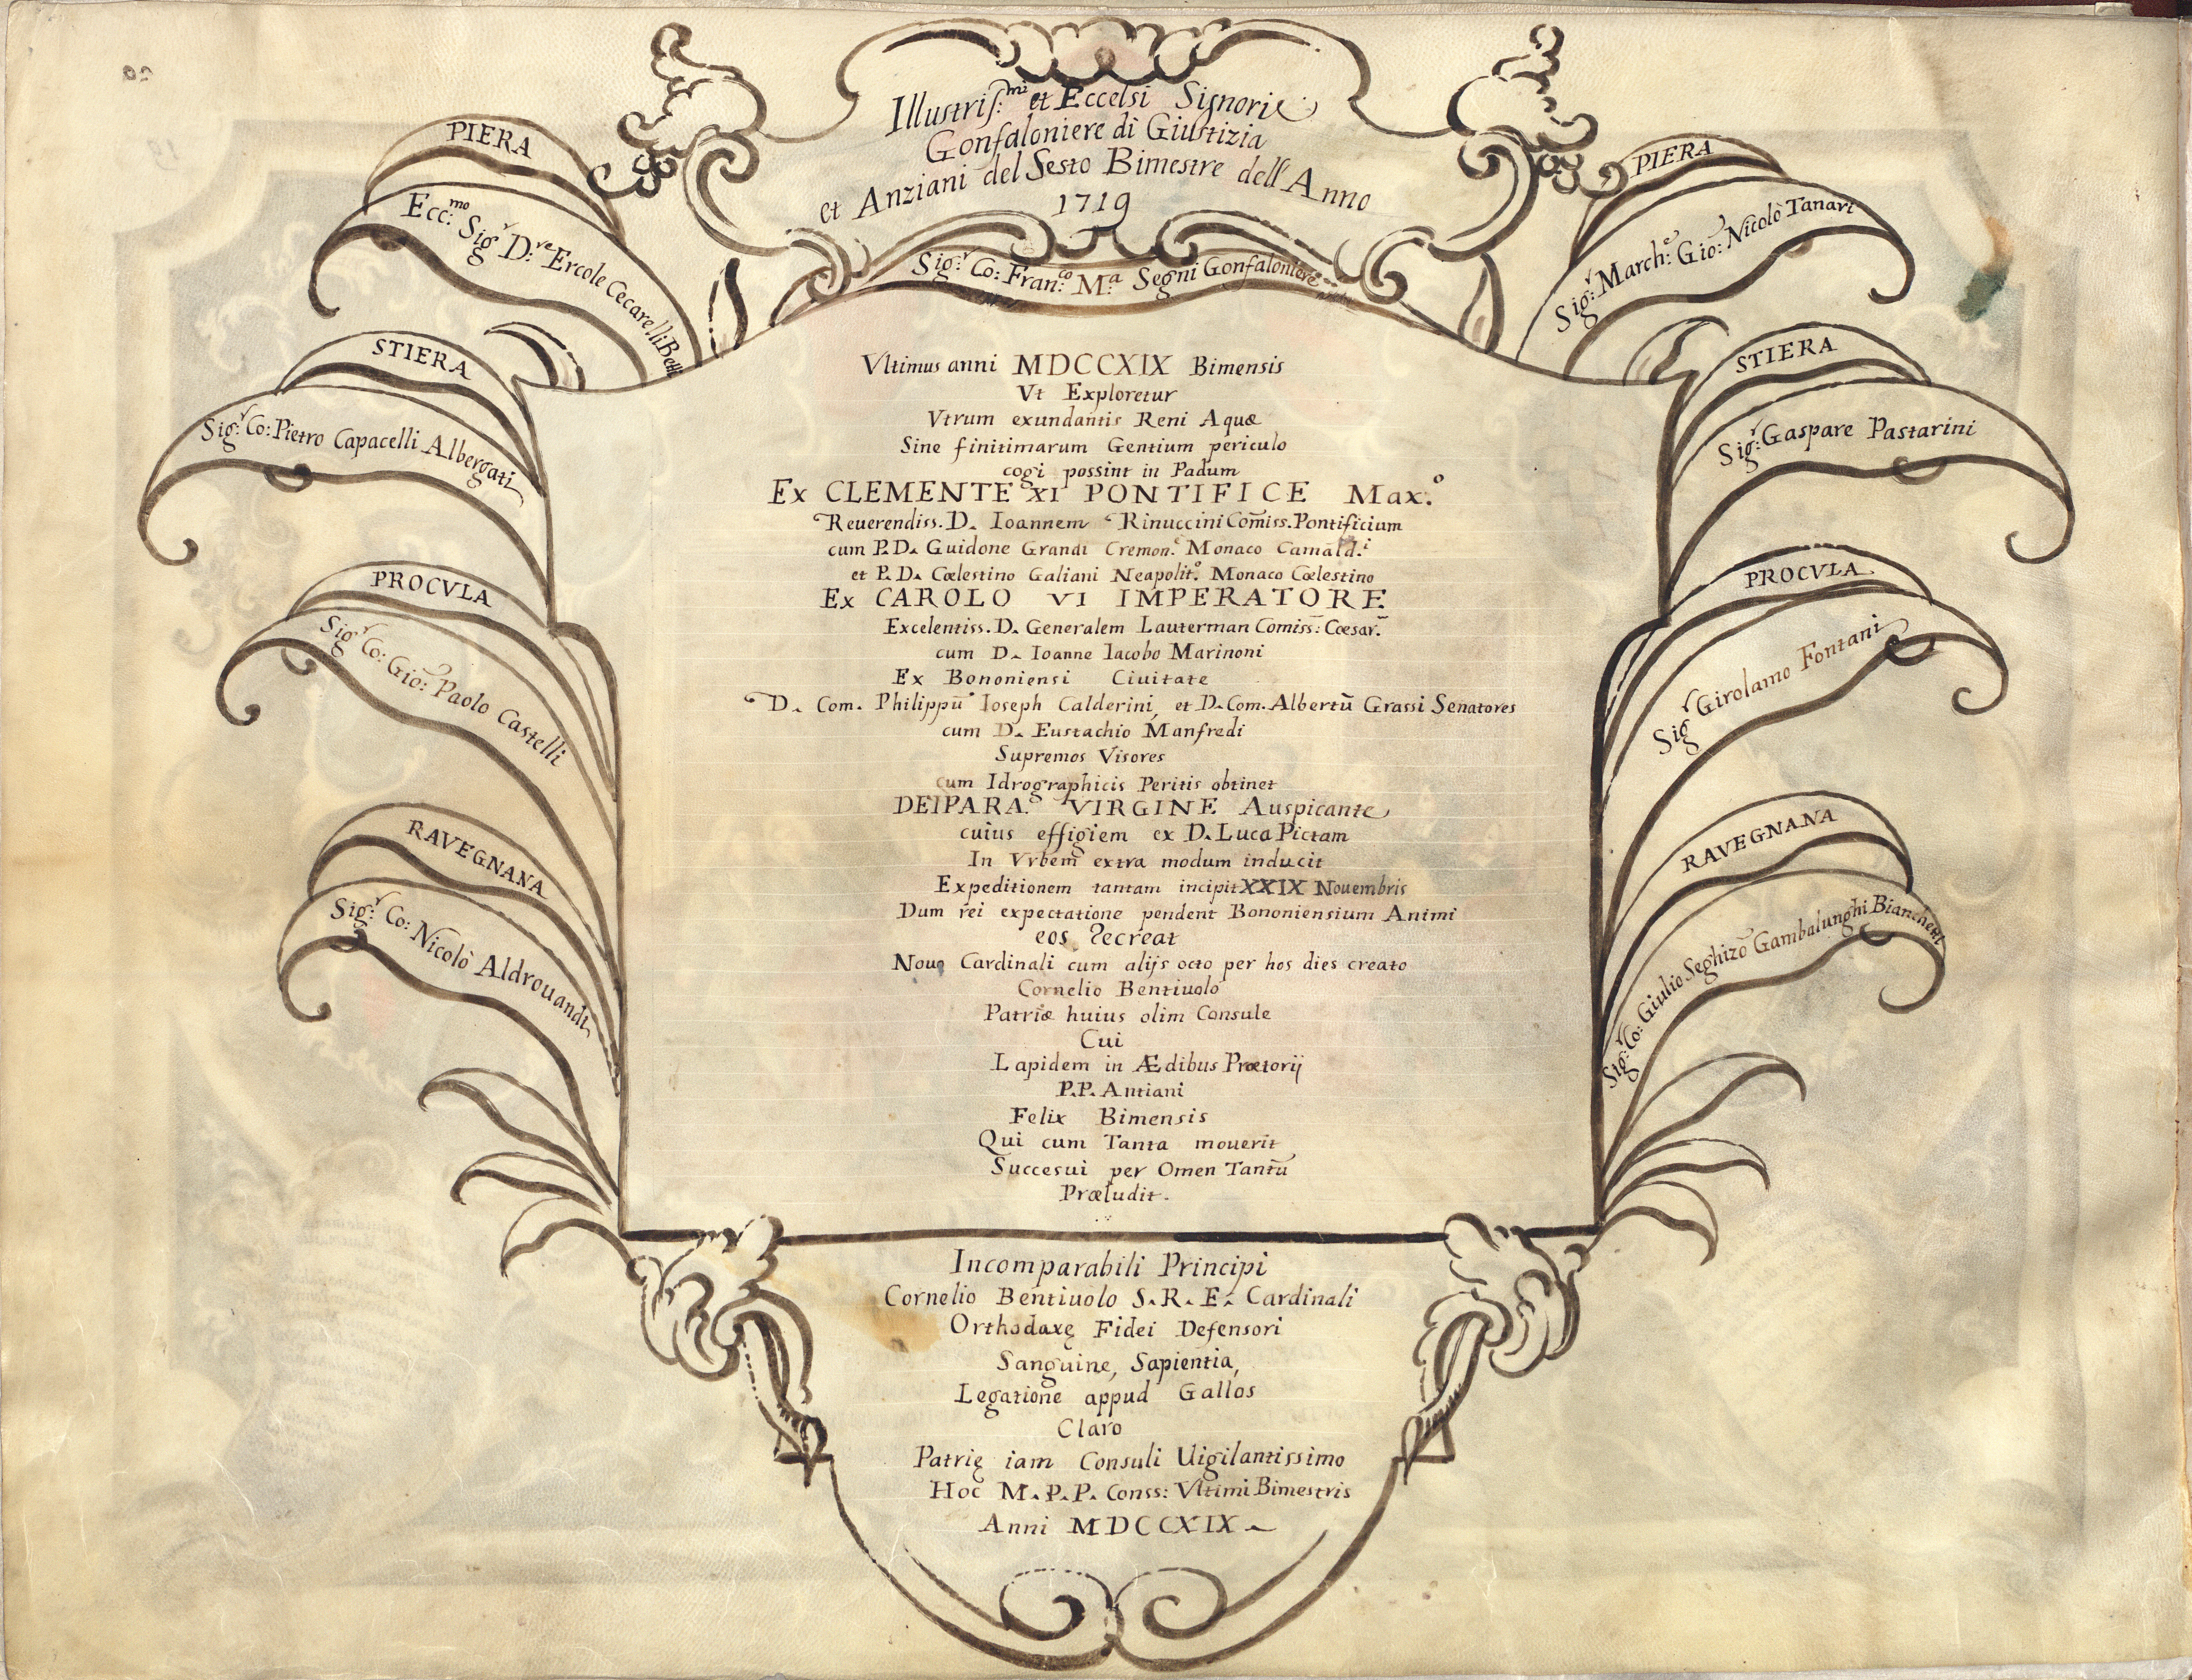 Illustris.mi et Eccelsi Signori
Gonfaloniere di Giustizia
et Anziani del Sesto Bimestre dell'Anno
1719
Sig.r Co: Fran.co M.a Segni Gonfaloniere
PIERA
Ecc.mo Sig.r D.re Ercole Cecarelli Betti
STIERA
Sig.r Co: Pietro Capacelli Albergati
PROCVLA
Sig.r Co: Gio: Paolo Castelli
RAVEGNANA
Sig.r Co: Nicolò Aldrouandi
PIERA
Sig.r March.e Gio: Nicolò Tanari
STIERA
Sig.r Gaspare Pastarini
PROCVLA
Sig.r Girolamo Fontani
RAVEGNANA
Sig.r Co: Giulio Seghizo Gambalunghi Bianchetti
Vltimus anni MDCCXIX Bimensis
Vt Exploretur
Vtrum exundantis Reni Aquæ
Sine finitimarum Gentium periculo
cogi possint in Padum
Ex CLEMENTE XI PONTIFICE Max.o
Reuerendiss. D. Ioannem Rinuccini Com̄iss. Pontificium
cum P. D. Guidone Grandi Cremon.e Monaco Camald.i
et P. D. Cœlestino Galiani Neapolit.o Monaco Cœlestino
Ex CAROLO VI IMPERATORE
Excelentiss. D. Generalem Lauterman Comiss: Cæsar.
cum D. Ioanne Iacobo Marinoni
Ex Bononiensi Ciuitate
D. Com. Philippū Ioseph Calderini, et D. Com. Albertū Grassi Senatores
cum D. Eustachio Manfredi
Supremos Visores
cum Idrographicis Peritis obtinet
DEIPARA VIRGINE Auspicante
cuius effigiem ex D. Luca Pictam
In Vrbem extra modum inducit
Expeditionem tantam incipit XXIX Nouembris
Dum rei expectatione pendent Bononiensium Animi
eos recreat
Nouo Cardinali cum alijs octo per hos dies creato
Cornelio Bentiuolo
Patriæ huius olim Consule
Cui
Lapidem in Ædibus Prætorij
P.P. Antiani
Felix Bimensis
Qui cum Tanta mouerit
Succesui per Omen Tantū
Præludit.
Incomparabili Principi
Cornelio Bentiuolo S. R. E. Cardinali
Orthodaxę Fidei Defensori
Sanguine, Sapientia,
Legatione appud Gallos
Claro
Patrię iam Consuli Uigilantissimo
Hoc M. P. P. Conss: Vltimi Bimestris
Anni MDCCXIX